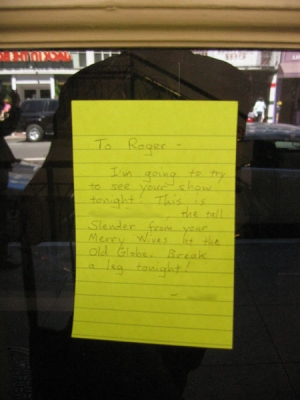 To Roger -
I'm going to try
to see your show
tonight! This is
the tall
Slender from your
Merry Wives at the
Old Globe. Break
a leg tonight!
-